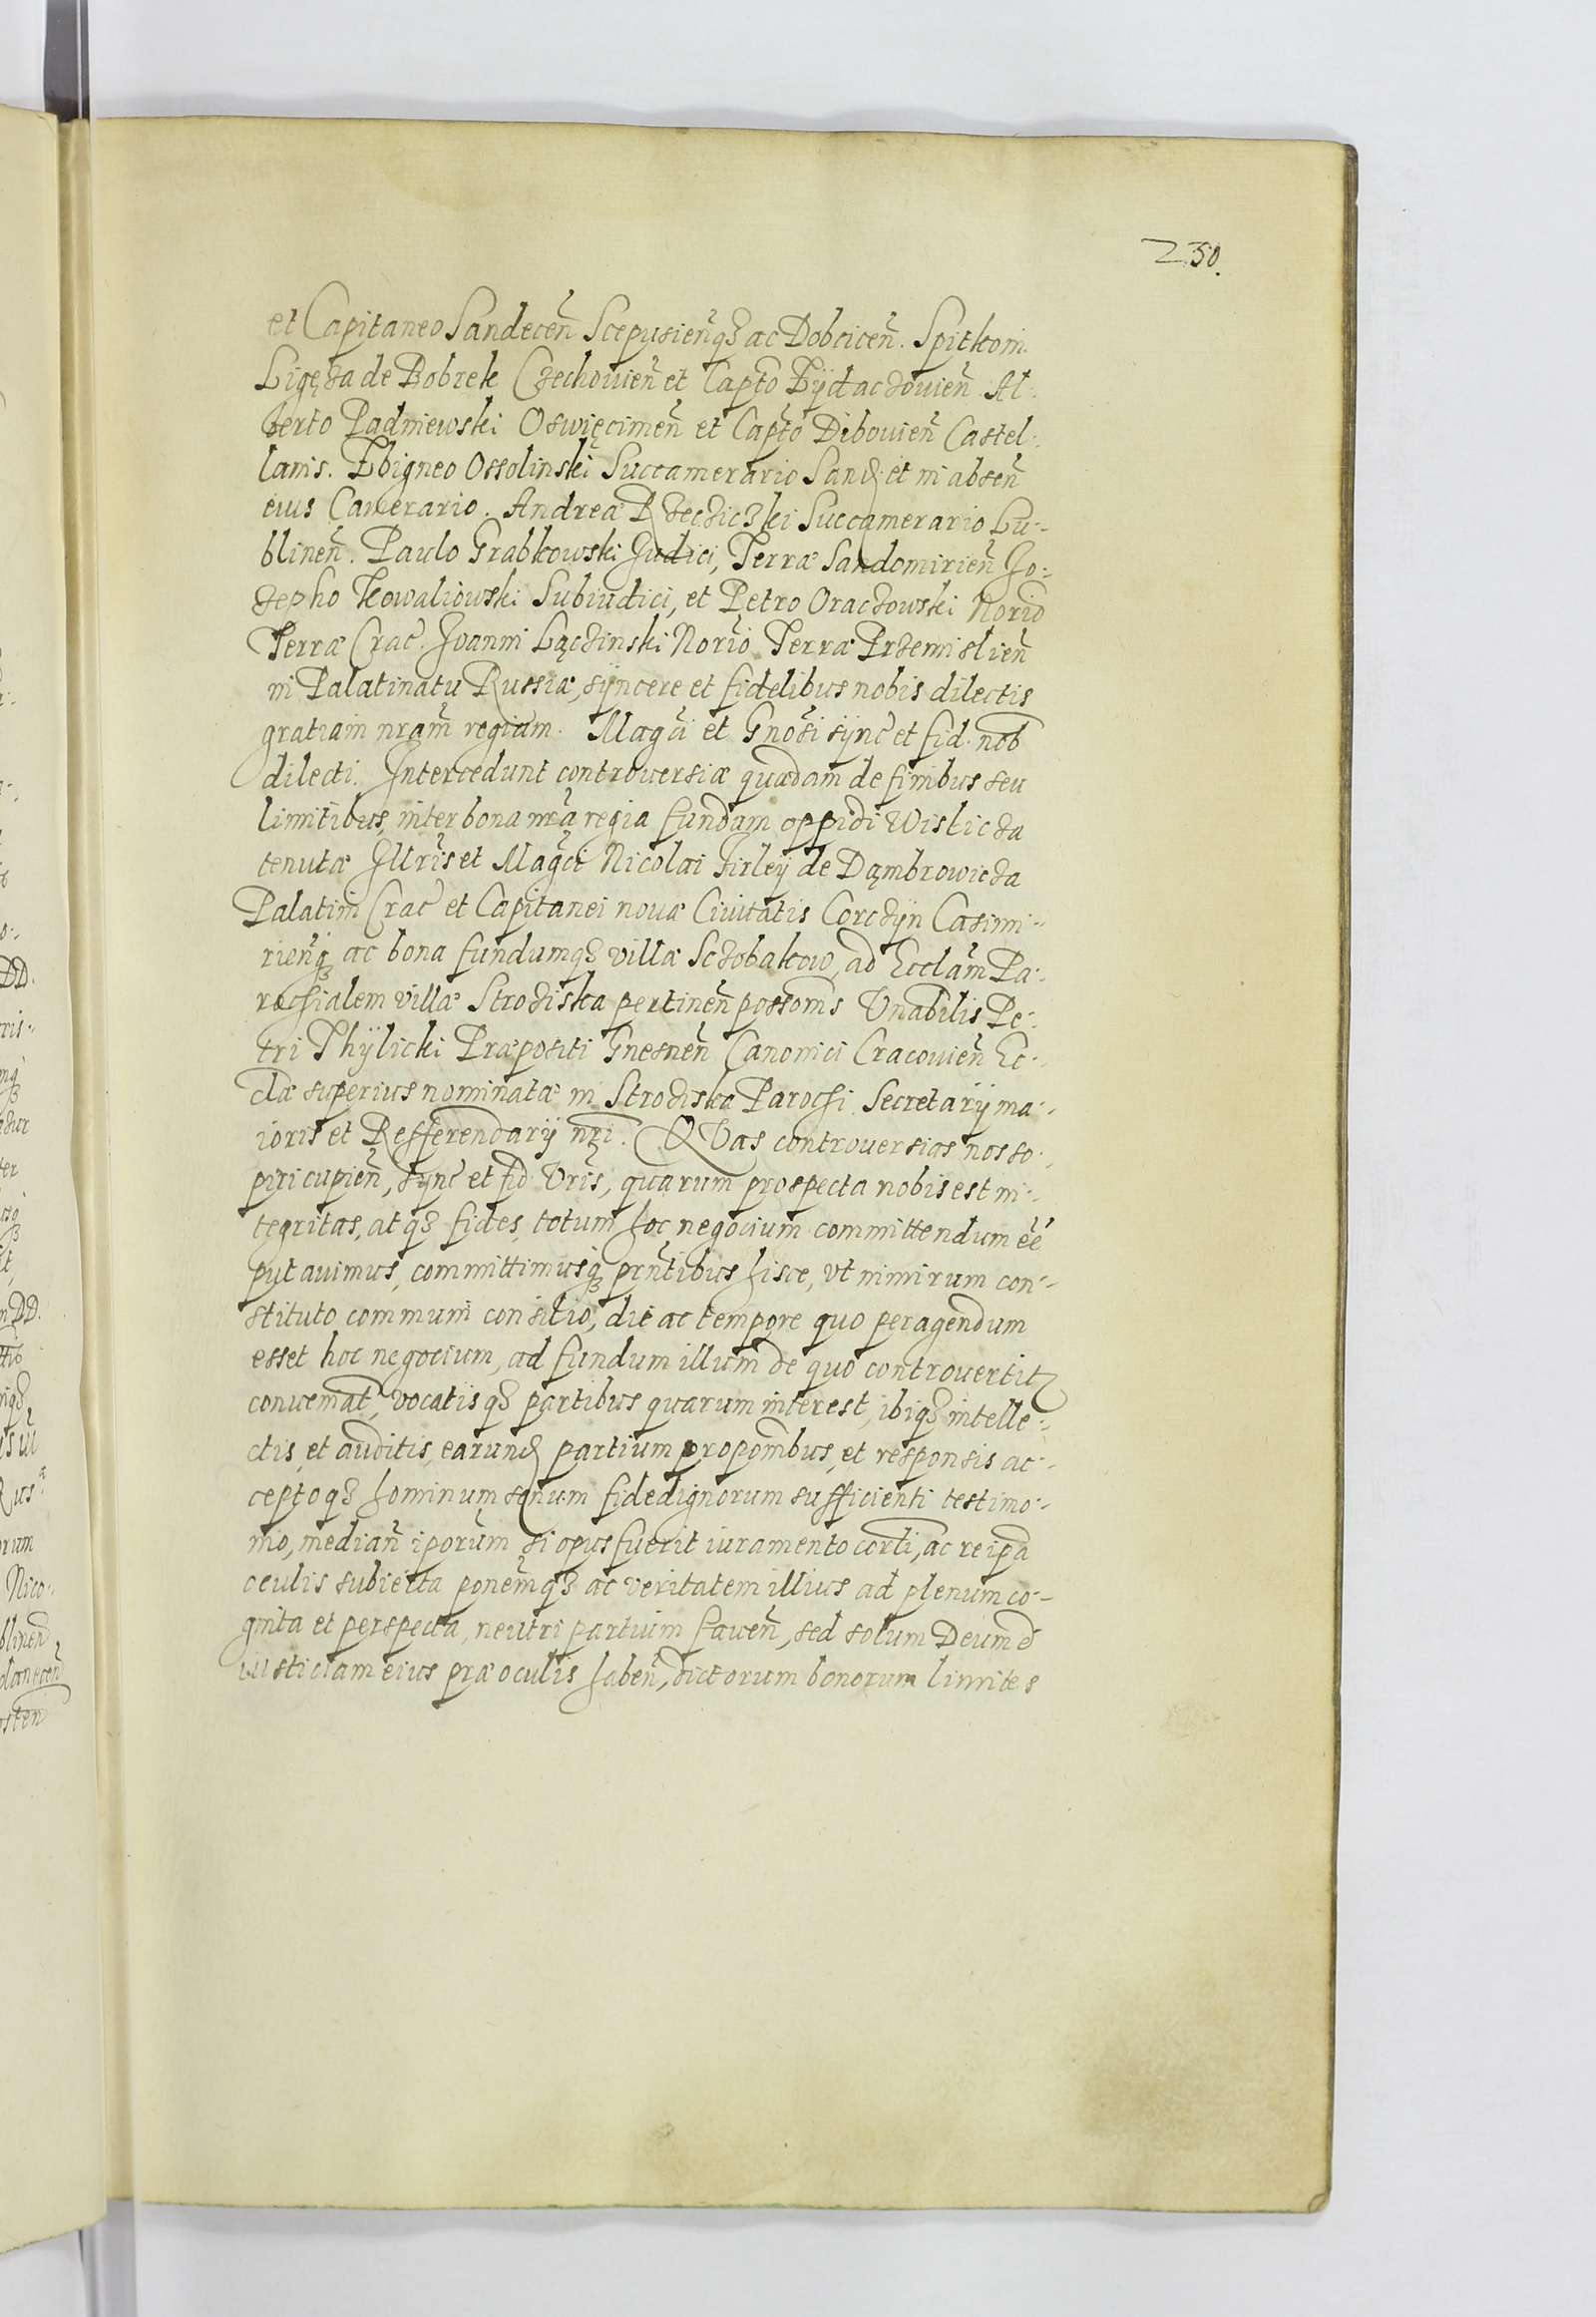 250.
et Capitaneo Sandeceñ Scepusieñq₃ ac Dobciceñ. Spitkoni
Ligęza de Bobrek Czechouieñ et Capto Zÿdaczouieñ Al-
berto Padniewski Oswięcimeñ et Capto Dibouieñ Castel-
lanis. Zbigneo Ossolinski Succamerario Sand. et in absen̄
eius Camerario. Andrea Rzeczic3ki Succamerario Lu-
blineñ. Paulo Grabkowski Judici, Terræ Sandomirieñ Jo-
zepho Kowaliowski Subiudici, et Petro Oraczowski Norio
Terræ Crac̃ Joanni Łączinski Norio Terræ Przemislieñ
in Palatinatu Russiæ, sÿncere et fidelibus nobis dilectis
gratiam nram̃ regiam. Magci et Gnosi sÿnc̃ et fid. nob̃
dilecti. Intercedunt controuersiæ quædam de finibus seu
limitibus, inter bona nrã regia fundum oppidi Wislicza
tenutæ Illris et Magci Nicolai Firleÿ de Dąmbrowicza
Palatini Crac̃ et Capitanei nouæ Ciuitatis Corczÿn Casimi-
rieñq₃ ac bona fundumq₃ villæ Sczobakow, ad Ecclam̃ Pa-
rochialem villæ Stroziska pertineñ possom̃s Vnabilis Pe-
tri Thÿlicki Præpositi Gnesneñ Canonici Cracouieñ Ec-
clæ superius nominatæ in Stroziska Parochi Secretarÿ ma-
ioris et Refferendarÿ nri. QVas controuersias nos so-
piri cupieñ, sÿnc̃ et fid. Vris̃, quarum prospecta nobis est in-
tegritas, atq₃ fides, totum hoc negocium committendum ee̋
putauimus, committimusq₃ prñtibus hisce, vt nimirum con-
stituto communi consilio, die ac tempore quo peragendum
esset hoc negocium, ad fundum illum de quo controuertit
conueniat, vocatisq₃ partibus quarum interest, ibiq₃ intelle-
ctis, et auditis, earund partium propom̃bus, et responsis ac-
ceptoq₃ hominum senum fidedignorum sufficienti testimo-
nio, mediañ iporum̃ si opus fuerit iuramento corli, ac re ipa
oculis subiecta poneñq₃ ac veritatem illius ad plenum co-
gnita et perspecta, neutri partium faueñ, sed solum Deum et
iusticiam eius præ oculis habeñ, dictorum bonorum limites